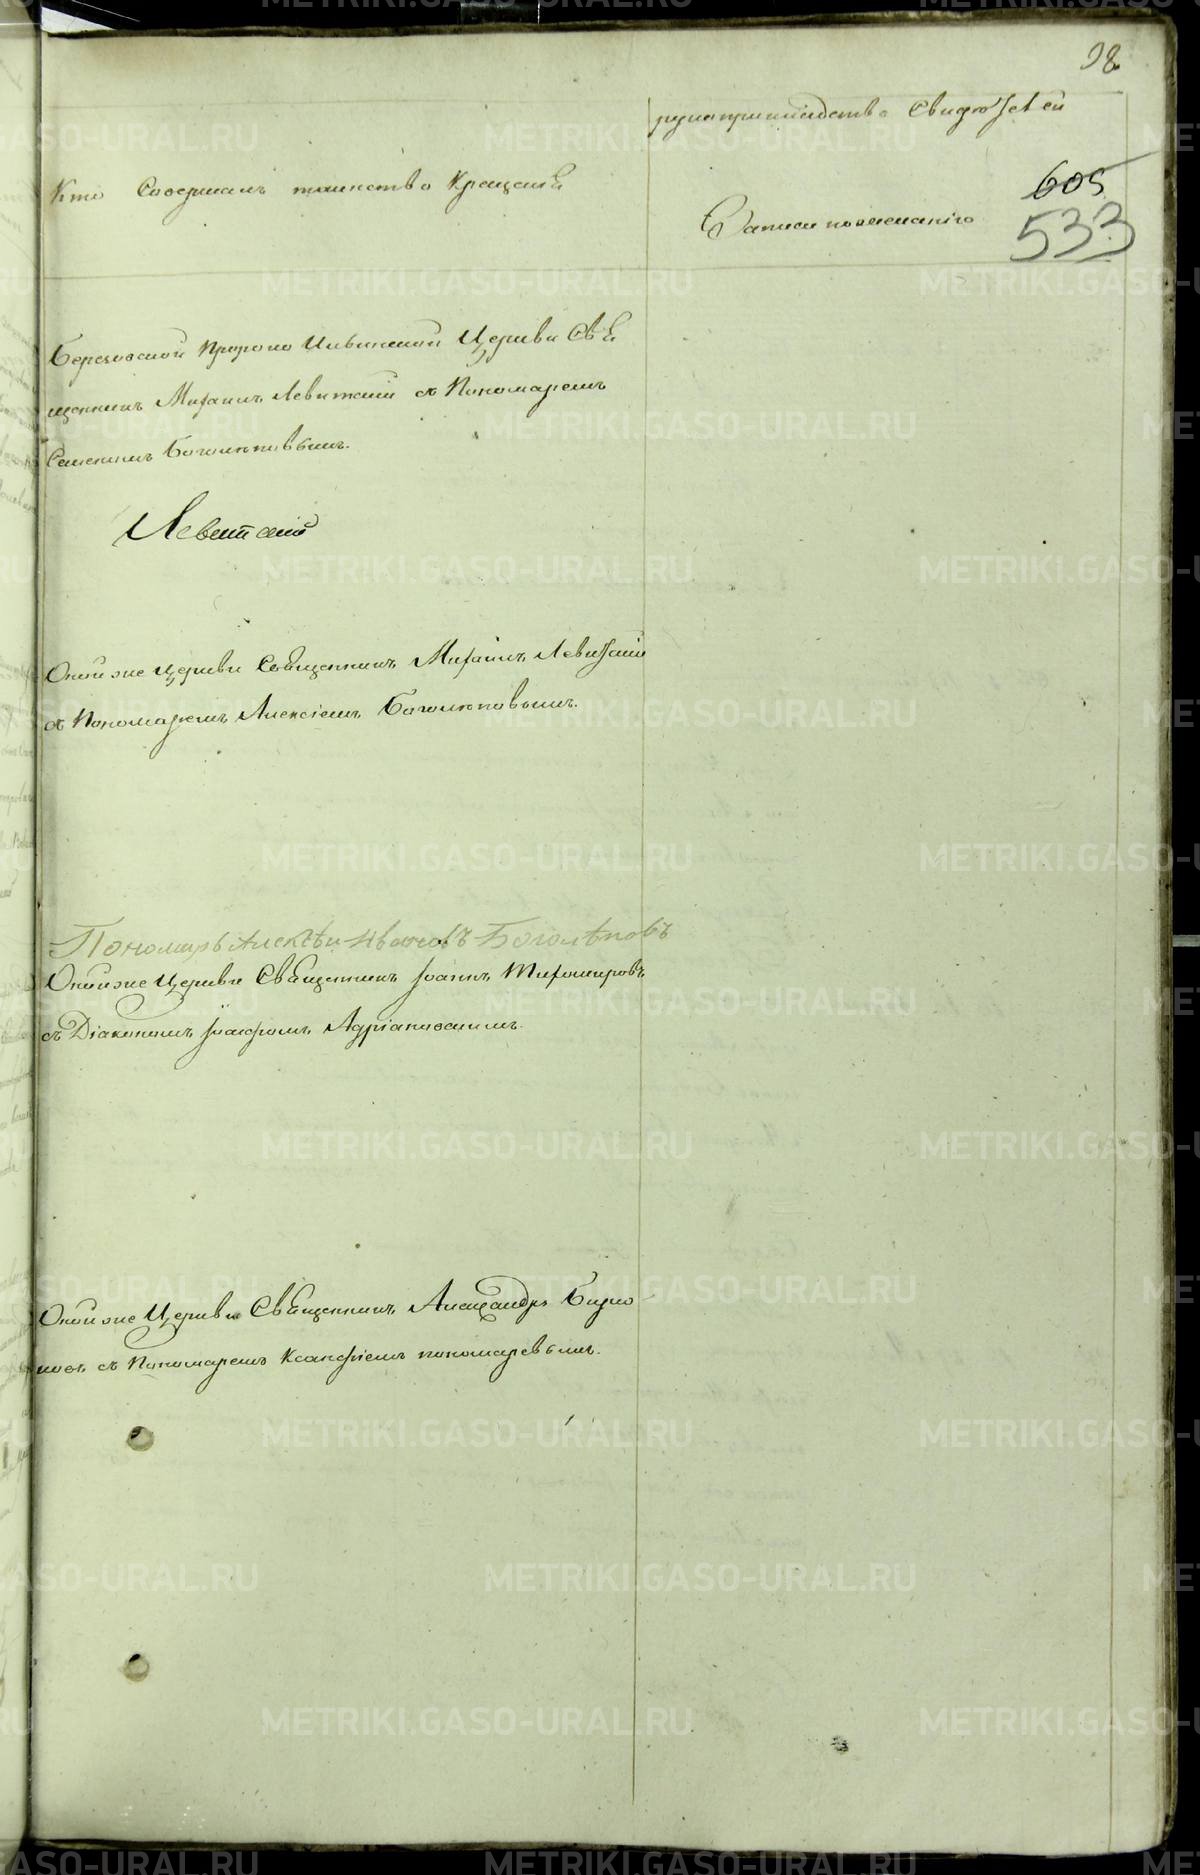 98
рукоприкладство свидѣтелей
Кто совершалъ таинство крещенія
605
Записи по желанію
533
Березовской Пророко Ильинской Церкви Свя
щенникъ Михаилъ Левитскій съ Пономаремъ
Семеномъ Боголѣповымъ.
Левитскій
Оной же Церкви Священникъ Михаилъ Левитскій
съ Пономаремъ Алексіемъ Боголѣповымъ.
Пономарь Алексѣй Ивановъ Боголѣповъ
Оной же Церкви Священникъ Іоаннъ Тихомировъ
съ Діакономъ Адріановскимъ.
Оной же Церкви Священникъ Александръ
съ Пономаремъ Ксанфіемъ Пономаревымъ.
METRIKI.GASO-URAL.RU